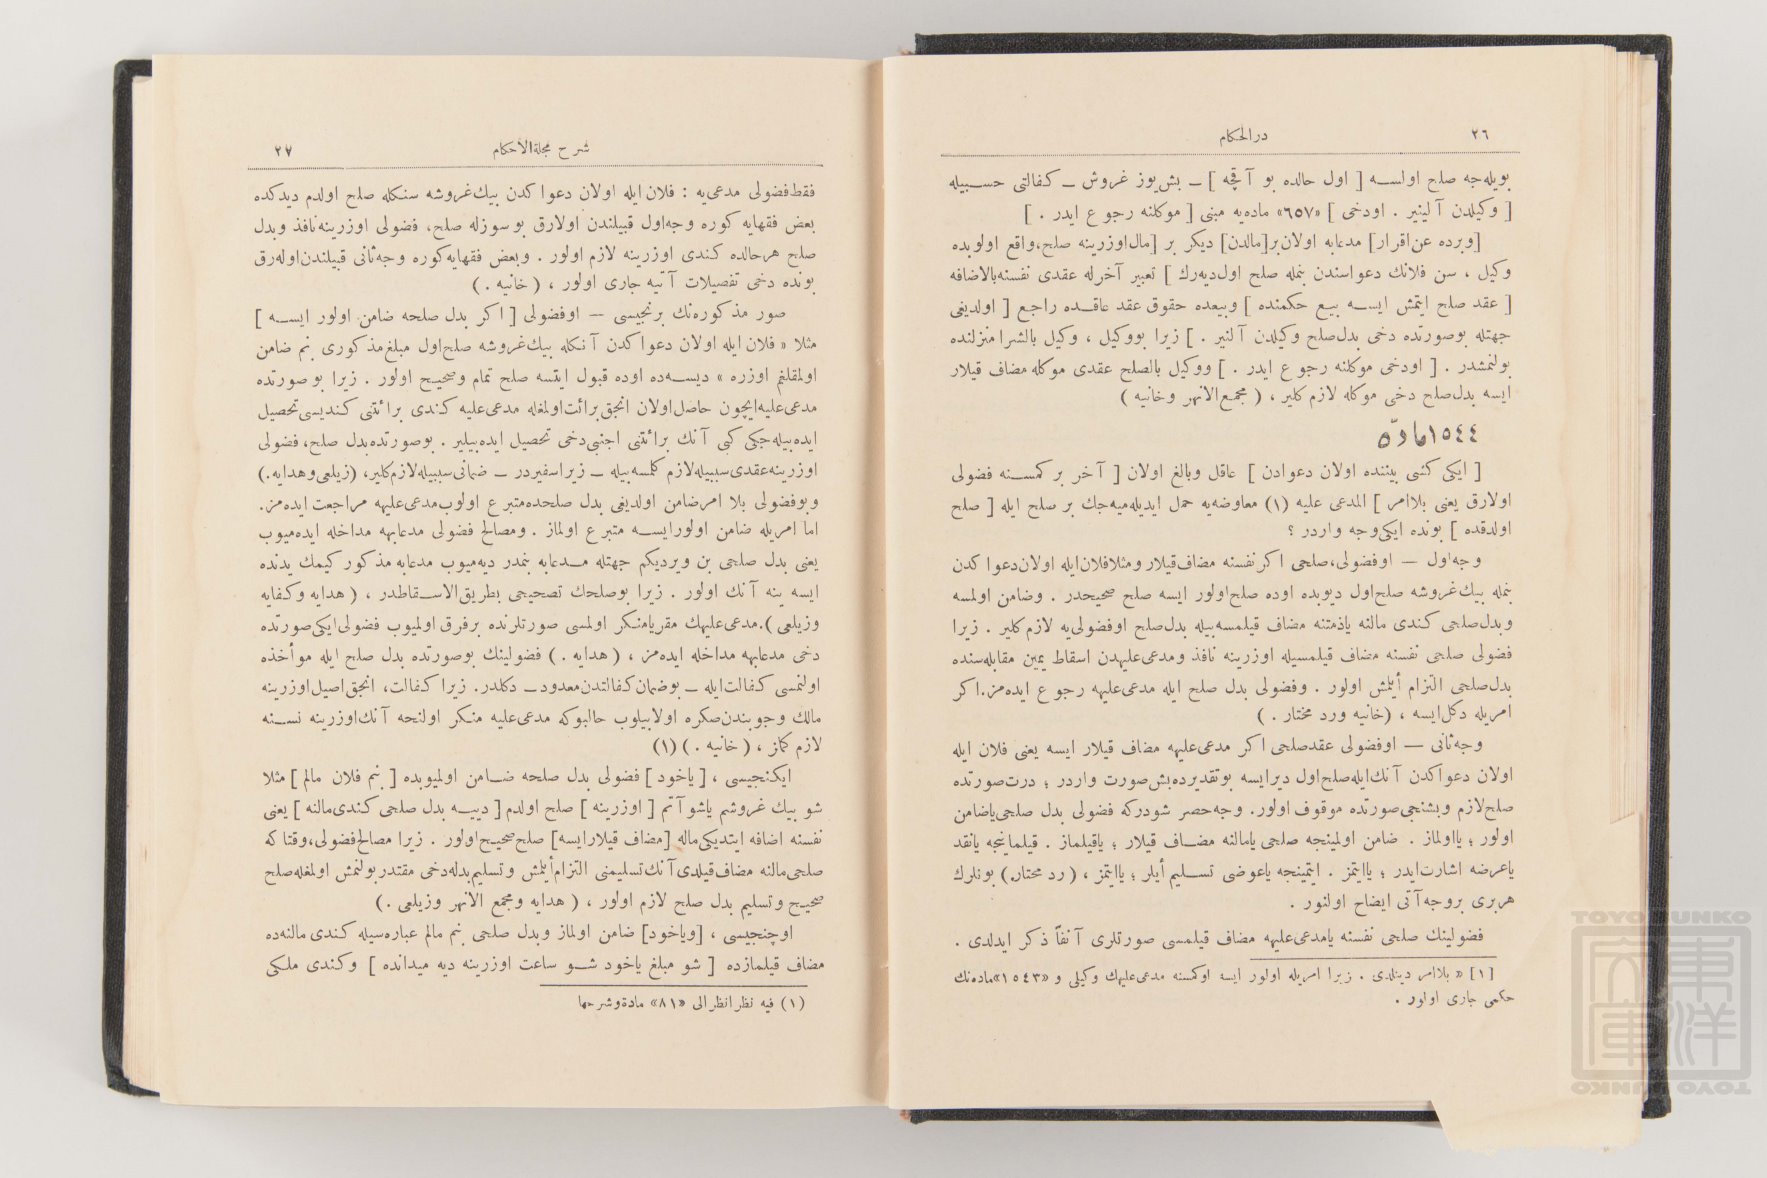 ٢٦
درالحکام
بویله‌جه صلح اولسه [ اول حالده بو آقچه ] ـ بش‌یوز غروش ـ کفالتی حسبیله
[ وکیلدن آلینیر . اودخی ] «٦٥٧» ماده‌یه مبنی [ موکلنه رجوع ایدر . ]
[وبرده عن‌اقرار] مدعابه اولان‌بر[مالدن] دیکر بر [مال‌اوزرینه صلح،واقع اولوبده
وکیل ، سن فلانك دعواسندن بنمله صلح اول‌دیه‌رك ] تعبیر آخرله عقدی نفسنه‌بالاضافه
[ عقد صلح ایتمش ایسه بیع حکمنده ] وبیعده حقوق عقد عاقده راجع [ اولدیغی
جهتله بوصورتده دخی بدل‌صلح وکیلدن آلنیر . ] زیرا بووکیل ، وکیل بالشرا منزلنده
بولنمشدر . [ اودخی موکلنه رجوع ایدر . ] ووکیل بالصلح عقدی موکله مضاف قیلار
ایسه بدل‌صلح دخی موکله لازم کلیر ، ( مجمع‌الانهر وخانیه )
١٥٤٤ مادّه
[ ایکی کشی بیننده اولان دعوادن ] عاقل وبالغ اولان [ آخر بر کمسنه فضولی
اولارق یعنی بلاامر ] المدعی علیه (١) معاوضه‌یه حمل ایدیله‌میه‌جك بر صلح ایله [ صلح
اولدقده ] بونده ایکی‌وجه واردر ؟
وجه‌اول — اوفضولی،صلحی اکرنفسنه مضاف‌قیلار ومثلافلان‌ایله اولان‌دعوا کدن
بنمله بیك‌غروشه صلح‌اول دیوبده اوده صلح‌اولور ایسه صلح صحیحدر . وضامن اولمسه
وبدل‌صلحی کندی مالنه یاذمتنه مضاف قیلمسه‌بیله بدل‌صلح اوفضولی‌یه لازم کلیر . زیرا
فضولی صلحی نفسنه مضاف قیلمسیله اوزرینه نافذ ومدعی‌علیهدن اسقاط یمین مقابله‌سنده
بدل‌صلحی التزام أیلمش اولور . وفضولی بدل صلح ایله مدعی‌علیهه رجوع ایده‌مز.اکر
امریله دکل‌ایسه ، (خانیه ورد مختار . )
وجه‌ثانی — اوفضولی عقدصلحی اکر مدعی‌علیهه مضاف قیلار ایسه یعنی فلان ایله
اولان دعواکدن آنك‌ایله‌صلح‌اول دیرایسه بوتقدیرده‌بش‌صورت واردر ؛ درت‌صورتده
صلح‌لازم وبشنجی‌صورتده موقوف اولور. وجه‌حصر شودرکه فضولی بدل صلحی‌یاضامن
اولور ؛ یااولماز . ضامن اولمینجه صلحی یامالنه مضاف قیلار ؛ یاقیلماز . قیلماینجه یانقد
یاعرضه اشارت‌ایدر ؛ یاایتمز . ایتمینجه یاعوضی تسلیم أیلر ؛ یاایتمز ، (رد مختار.) بونلرك
هربری بروجه‌آتی ایضاح اولنور .
فضولینك صلحی نفسنه یامدعی‌علیهه مضاف قیلمسی صورتلری آنفاً ذکر ایدلدی .
[١] « بلاامر دینلدی . زیرا امریله اولور ایسه اوکمسنه مدعی‌علیهك وکیلی و «١٥٤٣»ماده‌نك
حکمی جاری اولور .
شرح مجلة‌الاحکام
٢٧
فقط‌فضولی مدعی‌یه : فلان‌ایله اولان دعواکدن بیك‌غروشه سنکله صلح اولدم دیدکده
بعض فقهایه کوره وجه‌اول قبیلندن اولارق بوسوزله صلح، فضولی اوزرینه‌نافذ وبدل
صلح هرحالده کندی اوزرینه لازم اولور . وبعض فقهایه‌کوره وجه‌ثانی قبیلندن‌اوله‌رق
بونده دخی تفصیلات آتیه جاری اولور ، ( خانیه . )
صور مذکوره‌نك برنجیسی — اوفضولی [ اکر بدل صلحه ضامن اولور ایسه ]
مثلا « فلان‌ایله اولان دعواکدن آنکله بیك‌غروشه صلح‌اول مبلغ‌مذکوری بنم ضامن
اولمقلغم اوزره » دیسه‌ده اوده قبول ایتسه صلح تمام وصحیح اولور . زیرا بوصورتده
مدعی‌علیه‌ایچون حاصل‌اولان انجق‌برائت‌اولمغله مدعی‌علیه کندی برائتنی کندیسی‌تحصیل
ایده‌بیله‌جکی کبی آنك برائتنی اجنبی‌دخی تحصیل ایده‌بیلیر . بوصورتده‌بدل صلح، فضولی
اوزرینه‌عقدی‌سببیله‌لازم کلمسه‌بیله ـ زیراسفیردر ـ ضمانی‌سببیله‌لازم‌کلیر، (زیلعی‌وهدایه.)
وبوفضولی بلا امرضامن اولدیغی بدل صلحده‌متبرع اولوب‌مدعی‌علیهه مراجعت ایده‌مز.
اما امریله ضامن اولورایسه متبرع اولماز . ومصالح فضولی مدعابهه مداخله ایده‌میوب
یعنی بدل صلحی بن ویردیکم جهتله مدعابه بنمدر دیه‌میوب مدعابه مذکور کیمك یدنده
ایسه ینه آنك اولور . زیرا بوصلحك تصحیحی بطریق‌الاسقاطدر ، ( هدایه وکفایه
وزیلعی ).مدعی‌علیهك مقریامنکر اولمسی صورتلرنده برفرق اولمیوب فضولی‌ایکی‌صورتده
دخی مدعابهه مداخله ایده‌مز ، ( هدایه . ) فضولینك بوصورتده بدل صلح ایله موأخذه
اولنمسی کفالت‌ایله ـ بوضمان‌کفالتدن‌معدود ـ دکلدر. زیرا کفالت، انجق‌اصیل‌اوزرینه
مالك وجوبندن‌صکره اولابیلوب حالبوکه مدعی‌علیه منکر اولنجه آنك‌اوزرینه نسنه
لازم کلز ، ( خانیه . ) (١)
ایکنجیسی ، [یاخود] فضولی بدل صلحه ضامن اولمیوبده [ بنم فلان مالم ] مثلا
شو بیك غروشم یاشوآتم [ اوزرینه ] صلح اولدم [ دییه بدل صلحی کندی‌مالنه ] یعنی
نفسنه اضافه ایتدیکی‌ماله [مضاف قیلارایسه] صلح‌صحیح‌اولور . زیرا مصالح‌فضولی،وقتا که
صلحی‌مالنه مضاف‌قیلدی‌آنك‌تسلیمنی التزام‌أیلمش وتسلیم‌بدله‌دخی مقتدربولنمش اولمغله‌صلح
صحیح وتسلیم بدل صلح لازم اولور ، ( هدایه ومجمع الانهر وزیلعی . )
اوچنجیسی ، [ویاخود] ضامن اولماز وبدل صلحی بنم مالم عباره‌سیله کندی مالنه‌ده
مضاف قیلمازده [ شو مبلغ یاخود شو ساعت اوزرینه دیه میدانده ] وکندی ملکی
(١) فیه نظر انظر الی «٨١» مادة‌وشرحها
TOYO BUNKO
東洋文庫
TOYO BUNKO